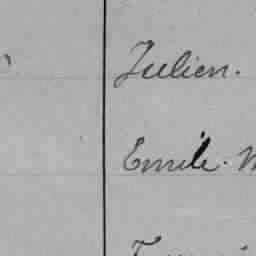 Julien.
Emile.